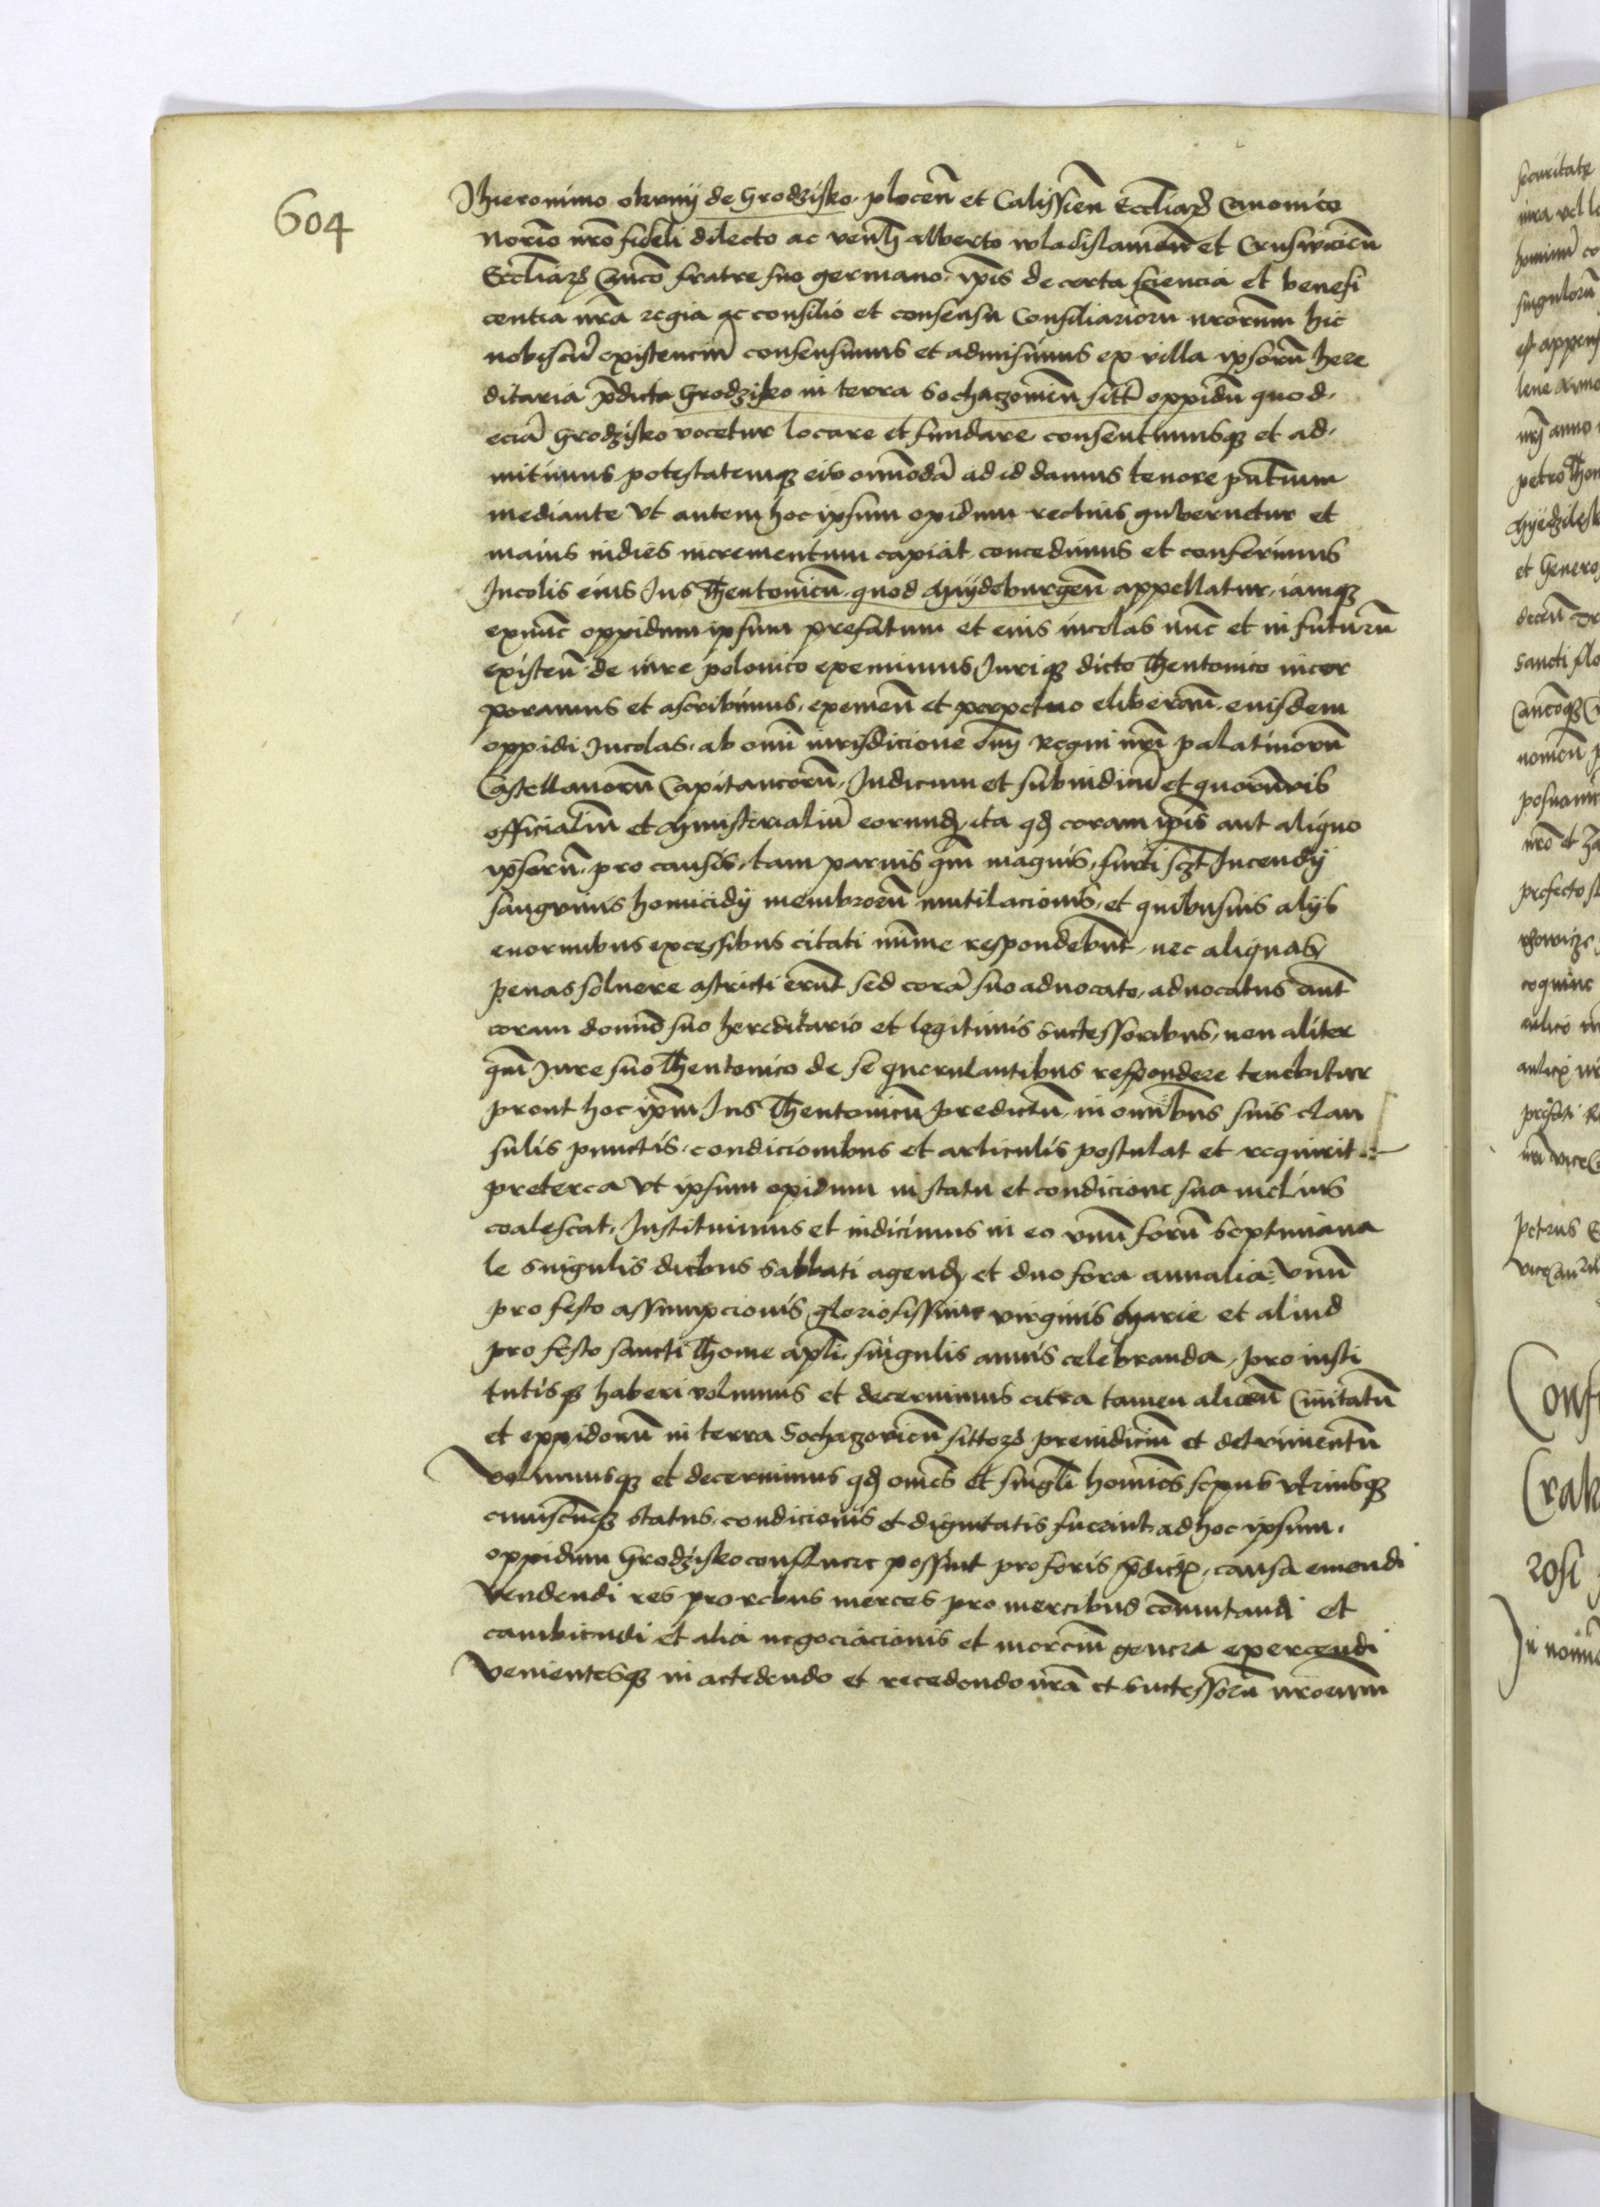 604
Jhieronimo okvnij de Grodzisko plocen̄ et Calissien̄ Eccliaꝝ Canonico
Norīo nr̄o fideli dilecto ac ven̄li Alberto wladislauien̄ et Cruswicien̄
Eccliaꝝ Can̄co fratre suo germano ip̄is de certa sciencia et benefi
centia nr̄a regia ac consilio et consensu Consiliariorū nr̄orum hic
nobiscū existenciū consensimus et admisimus ex villa ipsorū here
ditaria p̄dicta Grodzisko in terra Sochaczouien̄ sitt̄ oppidū quod
eciā Grodzisko vocetur locare et fundare consentimusqꝫ et ad
mitimus potestatemqꝫ eis om̄modā ad id damus tenore pn̄tium
mediante Vt autem hoc ipsum opidum rectius gubernetur et
maius indies incrementum capiat concedimus et conferimus
Incolis eius Ius Thentonicū quod Maydeburgen̄ appellatur iamqꝫ
exnūc oppidum ipsum prefatum et eius incolas nūc et in futurū
existen̄ de iure polonico exemimus Iuriqꝫ dicto Thentonico incor
poramus et ascribimus eximen̄ et perpetuo eliberan̄ eiusdem
oppidi Incolas ab om̄i iurisdicione om̄ Regni nr̄i palatinorū
Castellanorū Capitaneorū Iudicum et subiudicū et quorūvis
officialiū et Ministerialiū eorundꝫ ita qd̄ coram ip̄is aut aliquo
ipsorū pro causis tam paruis qm̄ magnis furti sczt Incendij
sanguinis homicidij membrorū mutilacionis et quibusuis alijs
enormibus excessibus citati mīme respondebūt nec aliquas
penas soluere astricti erūt sed corā suo aduocato aduocatus aūt
coram domīo suo hereditario et legitimis successoribus non aliter
qm̄ Iure suo Thentonico de se querulantibus respondere tenebitur
prout hoc ip̄m Ius Thentonicū predictū in om̄ibus suis clau
sulis punctis condicionibus et articulis postulat et requirit
preterea Vt ipsum opidum in statu et condicione sua melius
coalescat Instituimus et indicimus in eo vnū forū Septimana
le singulis diebus Sabbati agendꝫ et duo fora annalia Vnū
pro festo assumpcionis gloriosissime virginis Marie et aliud
pro festo sancti Thome apl̄i singulis annis celebranda pro insti
tutisqꝫ haberi volumus et decernimus citra tamen aliorū Ciuitatū
et oppidorū in terra Sochaczouien̄ sittoꝝ preiudiciū et detrimentū
Volumusqꝫ et decernimus qd̄ om̄es et singl̄i homīes sexus vtriusqꝫ
cuiuscūqꝫ status condicionis et dignitatis fuerint ad hoc ipsum
oppidum Grodzisko confluere possint pro foris p̄dictꝫ causa emendi
Vendendi res pro rebus merces pro mercibus com̄utandi et
cambiendi et alia negociacionis et merciū genera exercendi
Venientesqꝫ in accedendo et recedendo nr̄ā et successorū nr̄orum